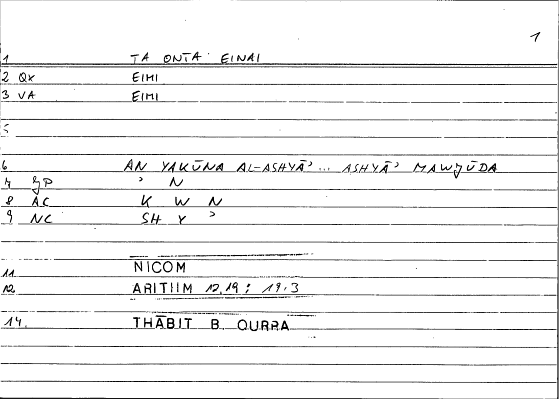 1
1 TA ONTA EINAI
2 QX EIMI
3 VA EIMI
5
6 AN YAKŪNA AL-ASHYĀʾ... ASHYĀʾ MAWJŪDA
7 JP ʾ N
8 AC K W N
9 NC SH Y ʾ
11 NICOM
12 ARITHM 12,19; 19.3
14. THĀBIT B. QURRA